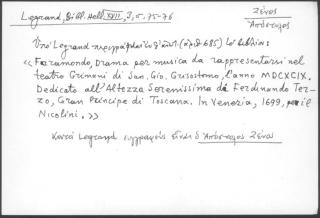 Legrand, Bibl. Hell. XVIII, 3, σ. 75-76
Ζένος
Ἀπόστολος
Ὑπὸ Legrand περιγράφεται (ἀριθ. 685) τὸ βιβλίον:
« Faramondo, Drama per musica da rappresentarsi nel
teatro Grimani di San. Gio. Grisostomo, l'anno MDCXCIX.
Dedicato all'Altezza Serenissima di Ferdinando Ter-
zo, Gran Principe di Toscana. In Venezia, 1699, per il
Nicolini, »
Κατὰ Legrand συγγραφεὺς εἶναι ὁ Ἀπόστολος Ζένος